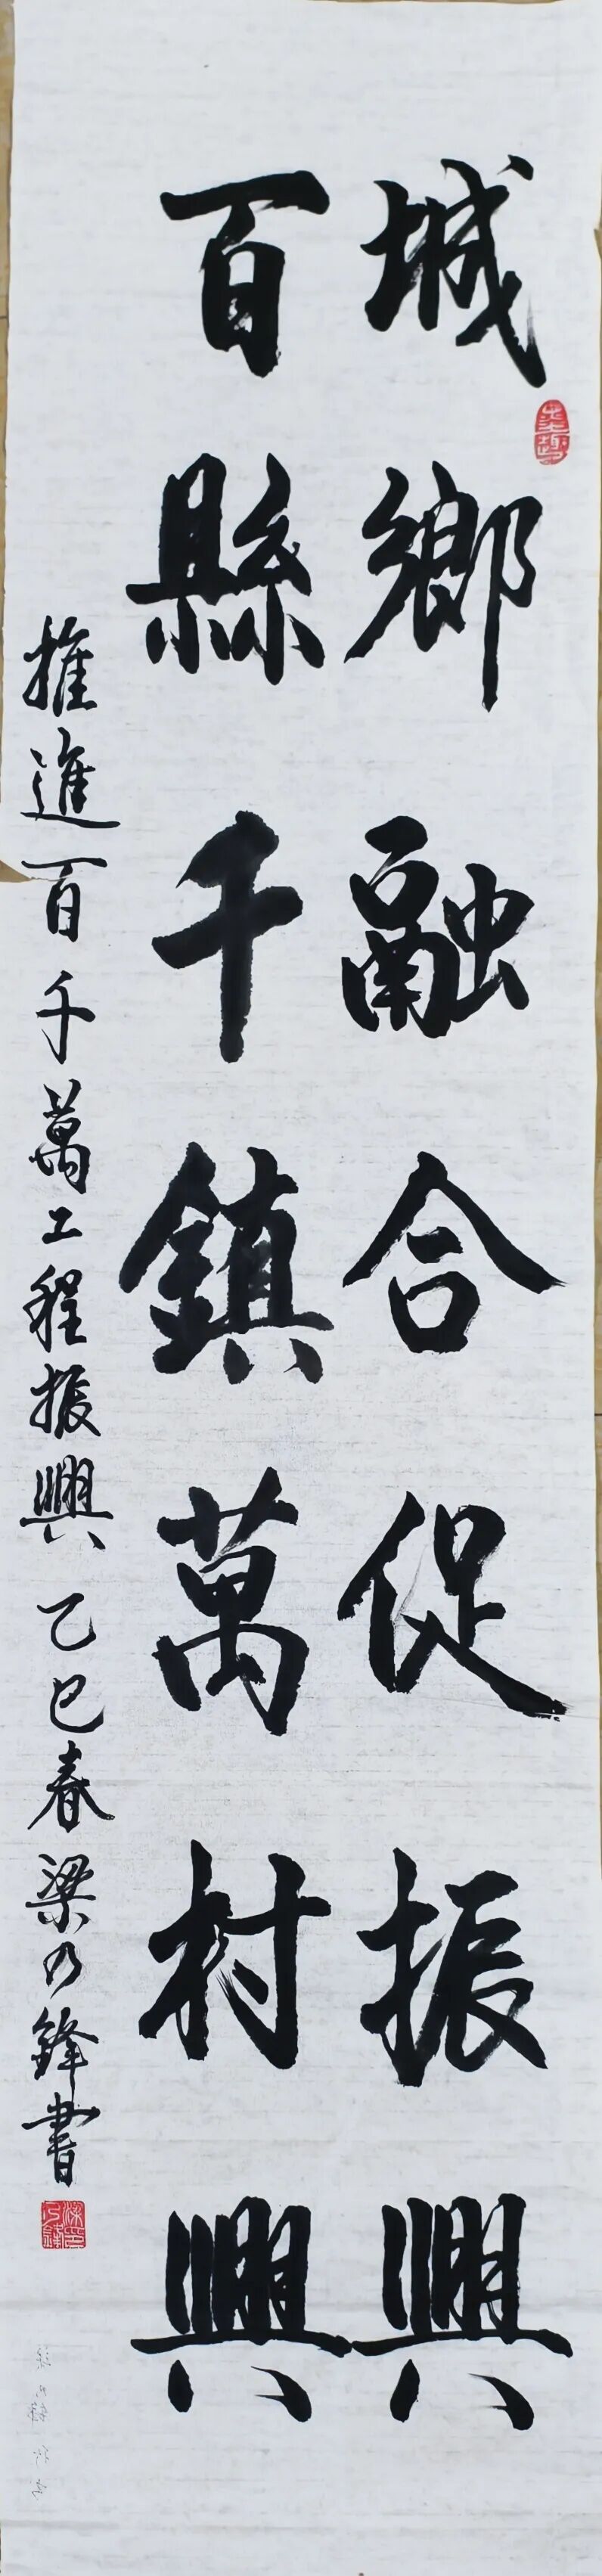 城鄉融合促振興
百縣千鎮萬村興
推進百千萬工程振興 乙巳春梁乃鋒書